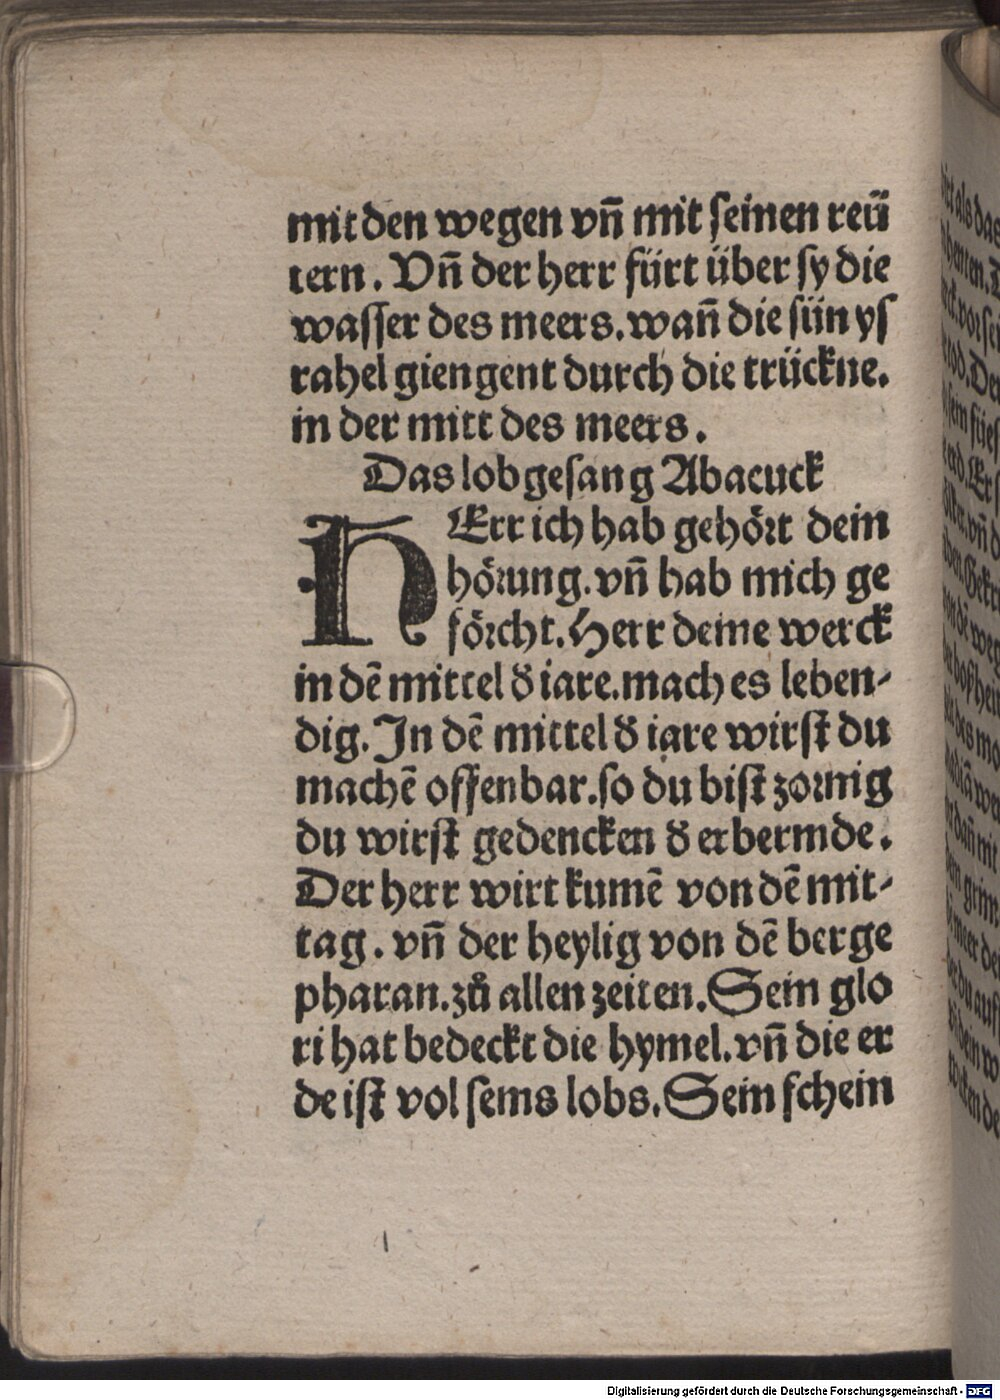 mit den wegen vñ mit ſeinen reü
tern. Vñ der herr fürt über ſy die
waſſer des meers. wañ die ſün yſ
rahel giengent durch die trückne.
in der mitt des meers.
Das lobgeſang Abacuck
HErr ich hab gehört dein
hörung. vñ hab mich ge
förcht. Herr deine werck
in dē mittel d̕ iare. mach es leben-
dig. In dē mittel d̕ iare wirſt du
machē offenbar. ſo du biſt zornig
du wirſt gedencken d̕ erbermde.
Der herr wirt kumē von dē mit-
tag. vñ der heylig von dē berge
pharan. zů allen zeiten. Sein glo
ri hat bedeckt die hymel. vñ die er
de iſt vol ſeins lobs. Sein ſchein
Digitalisierung gefördert durch die Deutsche Forschungsgemeinschaft - DFG